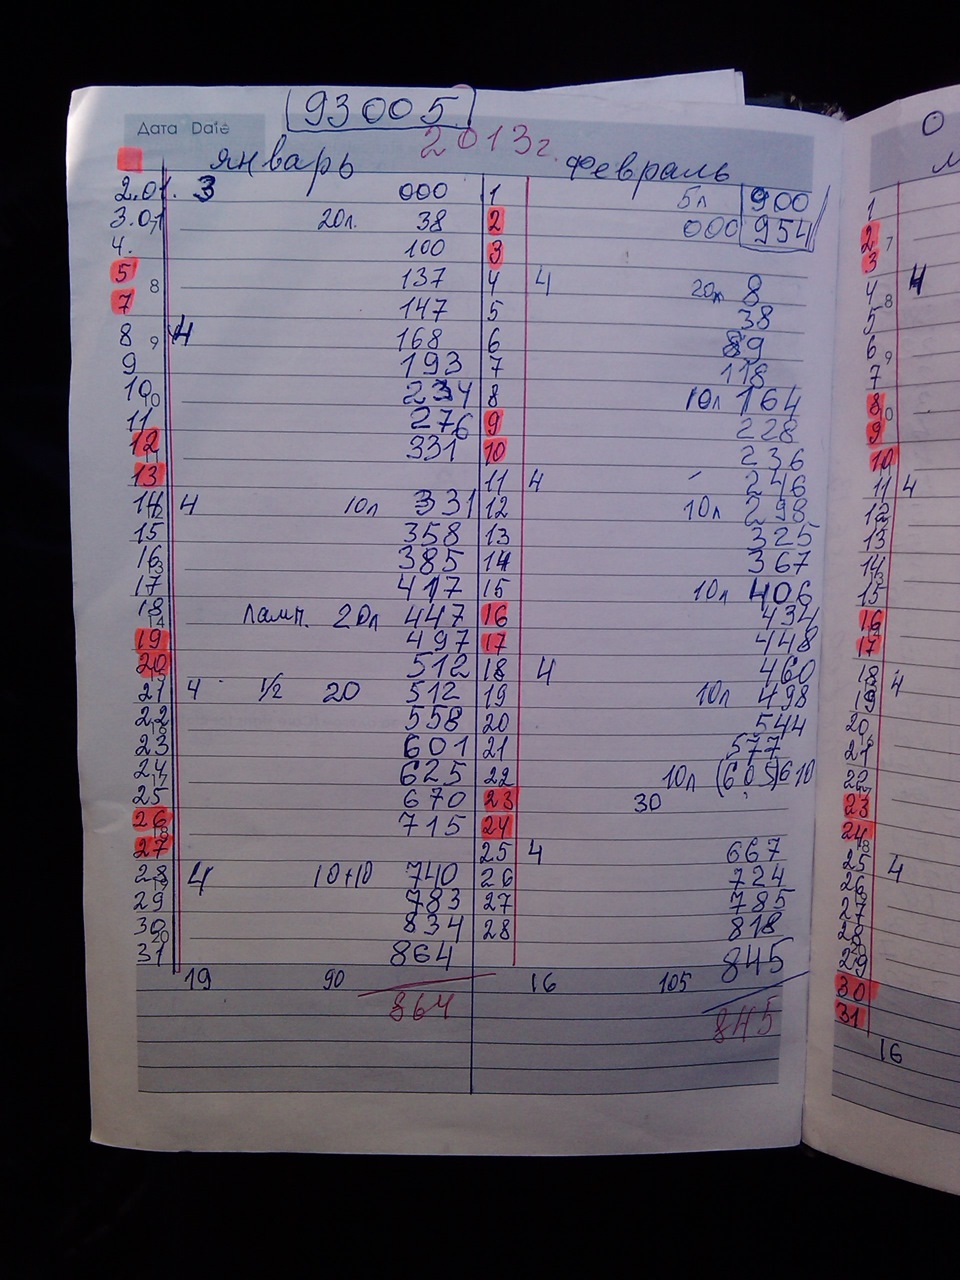 93005
Дата Date
2013г.
январь февраль
2.01. 3 000 1 5л 900
3.01 20л. 38 2 000 954
4. 100 3
5 137 4 4 20л 8
7 147 5 38
8 4 168 6 89
9 193 7 118
10 234 8 10л 164
11 276 9 228
12 331 10 236
13 11 4 246
14 4 10л 331 12 10л 298
15 358 13 325
16 385 14 367
17 417 15 10л 406
18 ламп. 20л 447 16 434
19 497 17 448
20 512 18 4 460
21 4 1/2 20 512 19 10л 498
22 558 20 544
23 601 21 577
24 625 22 10л (605) 610
25 670 23 30
26 715 24
27 25 4 667
28 4 10+10 740 26 724
29 783 27 785
30 834 28 818
31 864 845
19 90 16 105
864 845
1
2
3
4 4
5
6
7
8
9
10
11 4
12
13
14
15
16
17
18 4
19
20
21
22
23
24
25 4
26
27
28
29
30
31
16